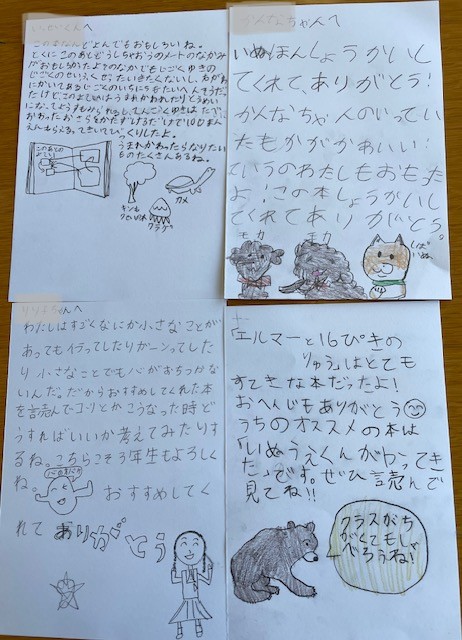 いっせいくんへ
このおはなしとよんでもおもしろいね。
とくにこのあとどうしちゃおうのノートのなかみ
がおもしろかったよ?そのなかでもじごくゆきの
にかいてあるじごくのいちにちもたいへんそうだっ
たけどこのよしは
おわったおさらをかたずけるだけで100まん
えんもらえる。てきいてびっくりしたよ。
うまれかわったらなりたい
ものたくさんあるね。
このあとの
よてい
カメ
クラゲ
かんなちゃんへ
いぬほんしょうかいし
てくれて、ありがとう!
かんなちゃんのいってい
たもかがかわいい!
ていうのわたしもおもった
よ!この本しょうかいし
てくれてありがとう。
モカ
モカ
しば
いぬ
りりこちゃんへ
わたしはすごくなにか小さなことが
あってもイラってしたりガーンってした
り小さなことでも心がおちつかな
いんだ。だからおすすめしてくれた本
を読んでコツとかこうなった時ど
うすればいいか考えてみたりす
るね。こちらこそ3年生もよろしく
ね。
おすすめしてく
れてありがとう
「エルマーと16ぴきの
りゅう」はとても
すてきな本だったよ!
おへんじもありがとう
うちのオススメの本は
「いぬうえくんがやってき
た」です。ぜひ読んで
見てね!!
クラスがち
がくてもしゃ
べろうね!